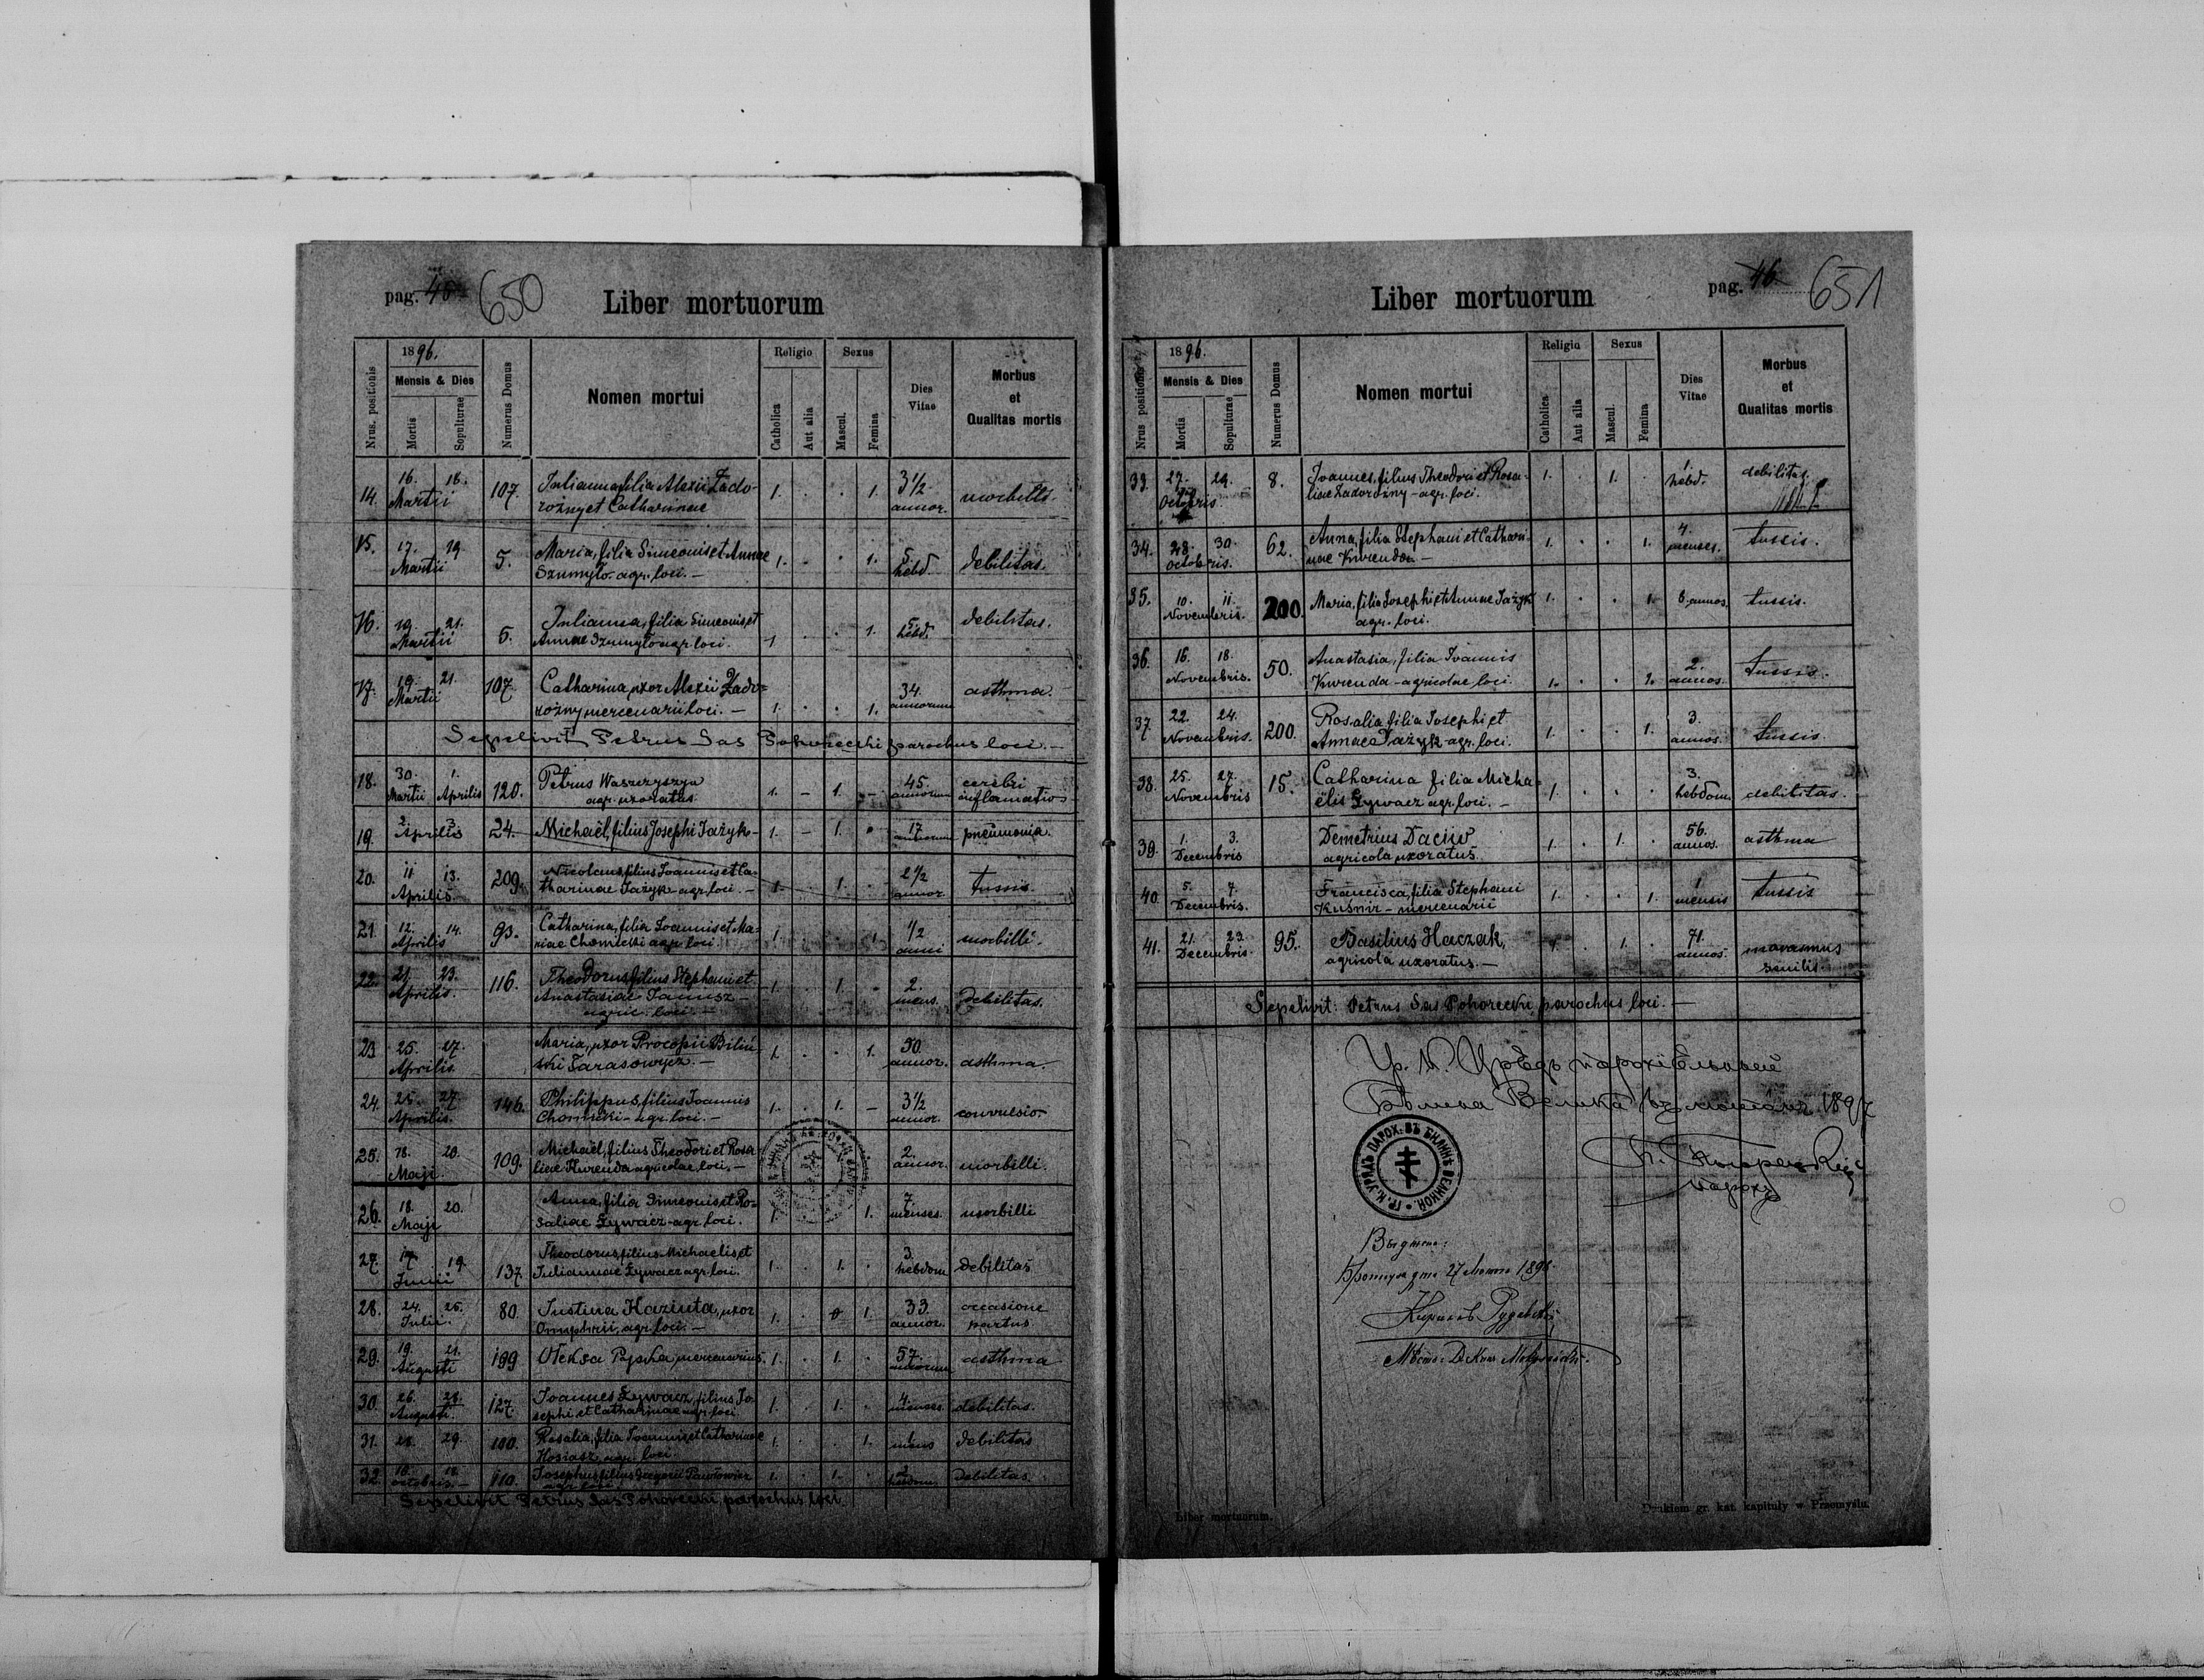 pag. 45 650
Liber mortuorum
Nrus. positionis
1896.
Mensis & Dies
Mortis
Sepulturae
Numerus Domus
Nomen mortui
Religio
Catholica
Aut alia
Sexus
Mascul.
Femina
Dies
Vitae
Morbus
et
Qualitas mortis
14. 16. 18. Martii 107. Julianna, filia Alexii Zado- 1. . . 1. 3½ annor. morbilli.
rożny et Catharinae
15. 17. 19. Martii 5. Maria, filia Simeonis et Annae 1. . . 1. 5. hebd. debilitas.
Szumyło agr. loci. —
16. 19. 21. Martii 5. Julianna, filia Simeonis et 1 . . 1. 5. hebd. debilitas.
Annae Szumyło agr. loci.
17. 19. 21. Martii 107. Catharina, uxor Alexii Zado= 1. . . 1. 34. annorum asthma.
rożny mercenarii loci. —
Sepelivit Petrus Sas Pohorecki parochus loci. —
18. 30. Martii 1. Aprilis 120. Petrus Waszczyszyn 1. – 1. – 45. annorum cerebri
agr. uxoratus inflamatio
19. 2. 3. Aprilis 24. Michaël, filius Josephi Jażyk – 1. – 1. . 17 annorum pneumonia.
20. 11 13. Aprilis. 209. Nicolaus, filius Joannis et Ca- 1. . 1. . 2½ annor. tussis.
tharinae Jażyk – agr. loci. –
21. 12. 14. Aprilis 93. Catharina, filia Joannis et Ma- 1. . . 1. ½ anni morbilli.
riae Chomicki agr. loci
22. 21. 23. Aprilis. 116. Theodorus, filius Stephani et 1. . 1. . 2. mens. debilitas.
Anastasiae Janusz –
agric. loci. —
23 25. 27. Aprilis. Maria, uxor Procopii Biliń- 1. . . 1. 50. annor. asthma.
ski Tarasowycz. —
24. 25. 27. Aprilis. 146. Philippus, filius Joannis 1. . 1. – 3½ annor. convulsio.
Chomicki – agr. loci. —
25. 18. 20. Maji 109. Michaël, filius Theodori et Rosa- 2. annor. morbilli.
liae Kurenda agricolae loci. —
26. 18. 20. Maji Anna, filia Simeonis et Ro= 1. 1. 7. menses. morbilli
saliae Żywacz – agr. loci.
27. 17. 19. Junii 137 Theodorus, filius Michaelis et 1. . 1. . 3. hebdom debilitas
Juliannae Żywacz agr. loci.
28. 24. 26. Julii. 80. Justina Kaziuta, uxor 1. . 1. 33. annor. occasione
Onuphrii, agr. loci. — partus.
29. 19. 21. Augusti 199 Oleksa Pyska, mercenarius. 1. . 1. . 57. annorum asthma
30. 26. 28. Augusti. 127. Joannes Żywacz, filius Jo- 1. . 1. . 4. menses debilitas.
sephi et Catharinae agr. loci
31. 28. 29. 110. Rosalia, filia Joannis et Catharinae 1. . . 1. 1 mens debilitas
agr. loci
32. 16. 18. octobris. – 110. Josephus, filius Gregorii Pawłowicz 1. . 1. . 2. hebdom. debilitas.
agr. loci
Sepelivit Petrus Sas Pohorecki parochus loci
pag. 46 651
Liber mortuorum
Nrus positionis
1896.
Mensis & Dies
Mortis
Sepulturae
Numerus Domus
Nomen mortui
Religio
Catholica
Aut alia
Sexus
Mascul.
Femina
Dies
Vitae
Morbus
et
Qualitas mortis
33. 27. 29. Octobris. 8. Joannes, filius Theodori et Rosa- 1. . 1. . 1 hebd. debilitas.
liae Zadorożny – agr. loci.
34. 28. 30. octobris. 62. Anna, filia Stephani et Cathari- 1. . . 1. 4. menses. tussis.
nae Kurenda —
35. 10. 11. Novembris. 200. Maria, filia Josephi et Annae Jażyk 1. . . 1. 6. annos. tussis.
agr. loci.
36. 16. 18. Novembris. 50. Anastasia, filia Joannis 1. . . 1. 2. annos. tussis.
Kurenda – agricolae loci.
37. 22. 24. Novembris. 200. Rosalia, filia Josephi et 1. . . 1. 3. annos. tussis.
Annae Jażyk – agr. loci.
38. 25. 27. Novembris 15. Catharina filia Micha- 1. . . . 3. hebdom. debilitas.
ëlis Żywacz agr. loci. –
39. 1. 3. Decembris Demetrius Daciw 1. . 1. . 56. annos. asthma
agricola uxoratus.
40. 5. 7. Decembris. Francisca, filia Stephani 1. . . 1. 1 mensis tussis
Kuśnir – mercenarii
41. 21. 23. Decembris. 95. Basilius Haczak, 1. . 1. . 71. annos. marasmus
agricola uxoratus. — senilis.
Sepelivit: Petrus Sas Pohorecki, parochus loci. —
Гр. К. Урядъ парохіяльный
Билина Велика 1897
ГР. К. УРЯДЪ ПАРОХ. ВЪ БИЛИНѢ ВЕЛИКОЙ
П. Погорецкій
парохъ
Видѣно:
дня 27
Liber mortuorum.
Drukiem gr. kat. kapituły w Przemyślu.